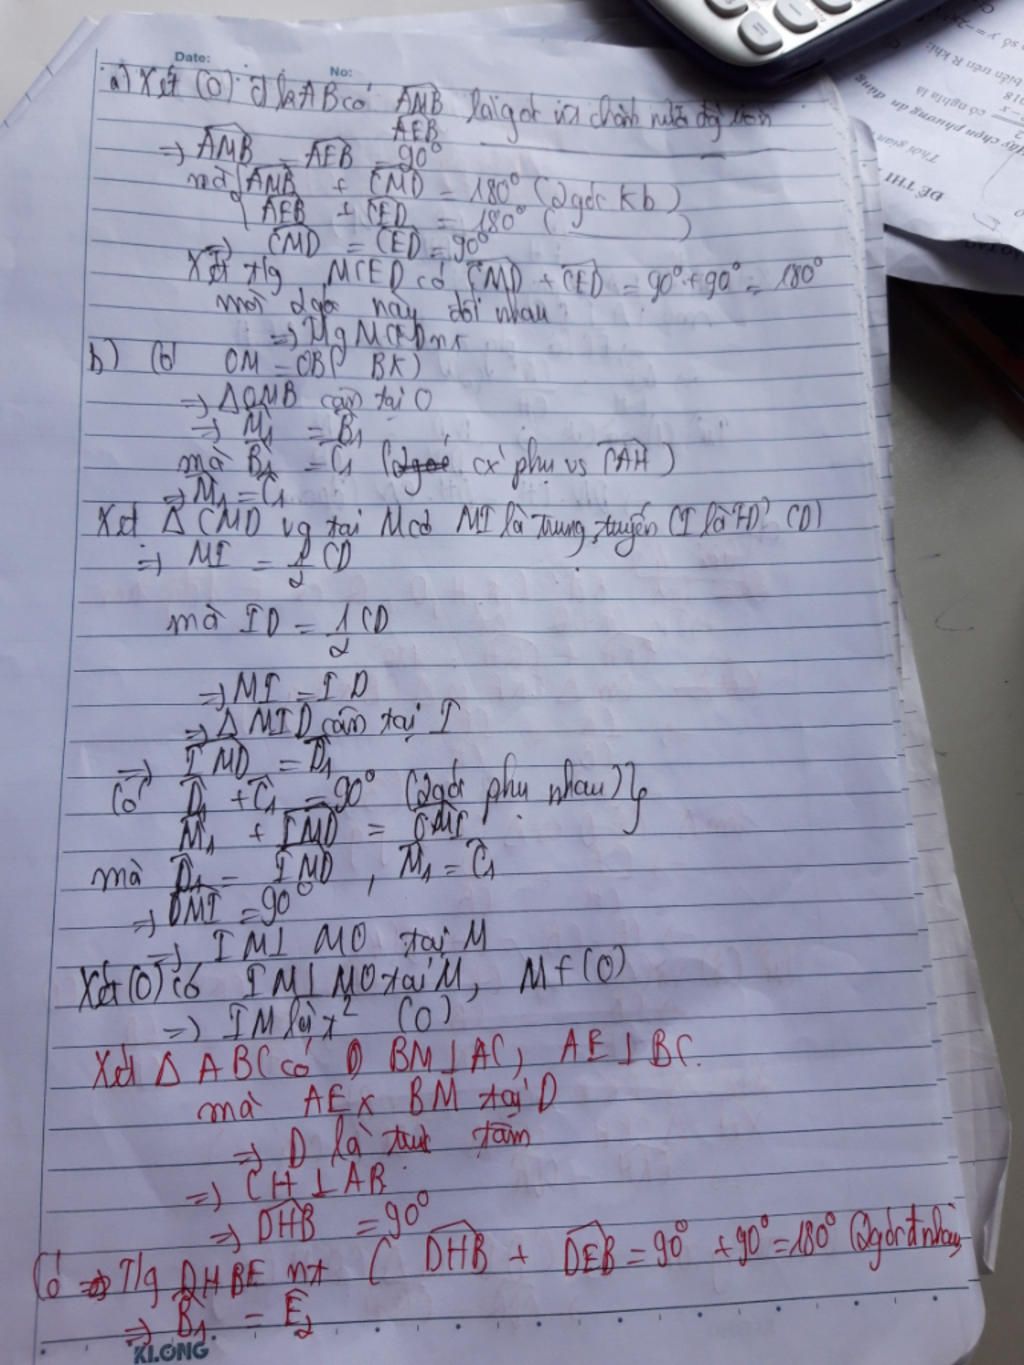 Date:
No:
a) Xét (O) đ kAB có AMB là góc nt chắn nửa đg tròn
AEB
=> AMB = AEB = 90°
mà AMB + CMD = 180° (2 góc kb)
AEB + CED = 180° ( )
=> CMD = CED = 90°
Xét t/g MCED có CMD + CED = 90° + 90° = 180°
mà 2 góc này đối nhau
=> T/g MCED nt
b) Có OM = OB ( BK)
=> Δ OMB cân tại O
=> M1 = B1
mà B1 = C1 ( cx phụ vs CAH )
=> M1 = C1
Xét Δ CMD vg tại M có MI là trung tuyến (I là TĐ CD)
=> MI = 1/2 CD
mà ID = 1/2 CD
=> MI = ID
=> Δ MID cân tại I
=> IMD = D1
Có D1 + C1 = 90° (2 góc phụ nhau) }
M1 + IMD = OMI
mà D1 = IMD , M1 = C1
=> OMI = 90°
=> IM ⊥ MO tại M
Xét (O) có IM ⊥ MO tại M, M € (O)
=> IM là t² (O)
Xét Δ ABC có BM ⊥ AC, AE ⊥ BC.
mà AE x BM tại D
=> D là trực tâm
=> CH ⊥ AB
=> DHB = 90°
Có T/g DHBE nt ( DHB + DEB = 90° + 90° = 180° (2 góc đ nhau)
=> B1 = E2
KLONG
ĐỀ THI
Thời gian